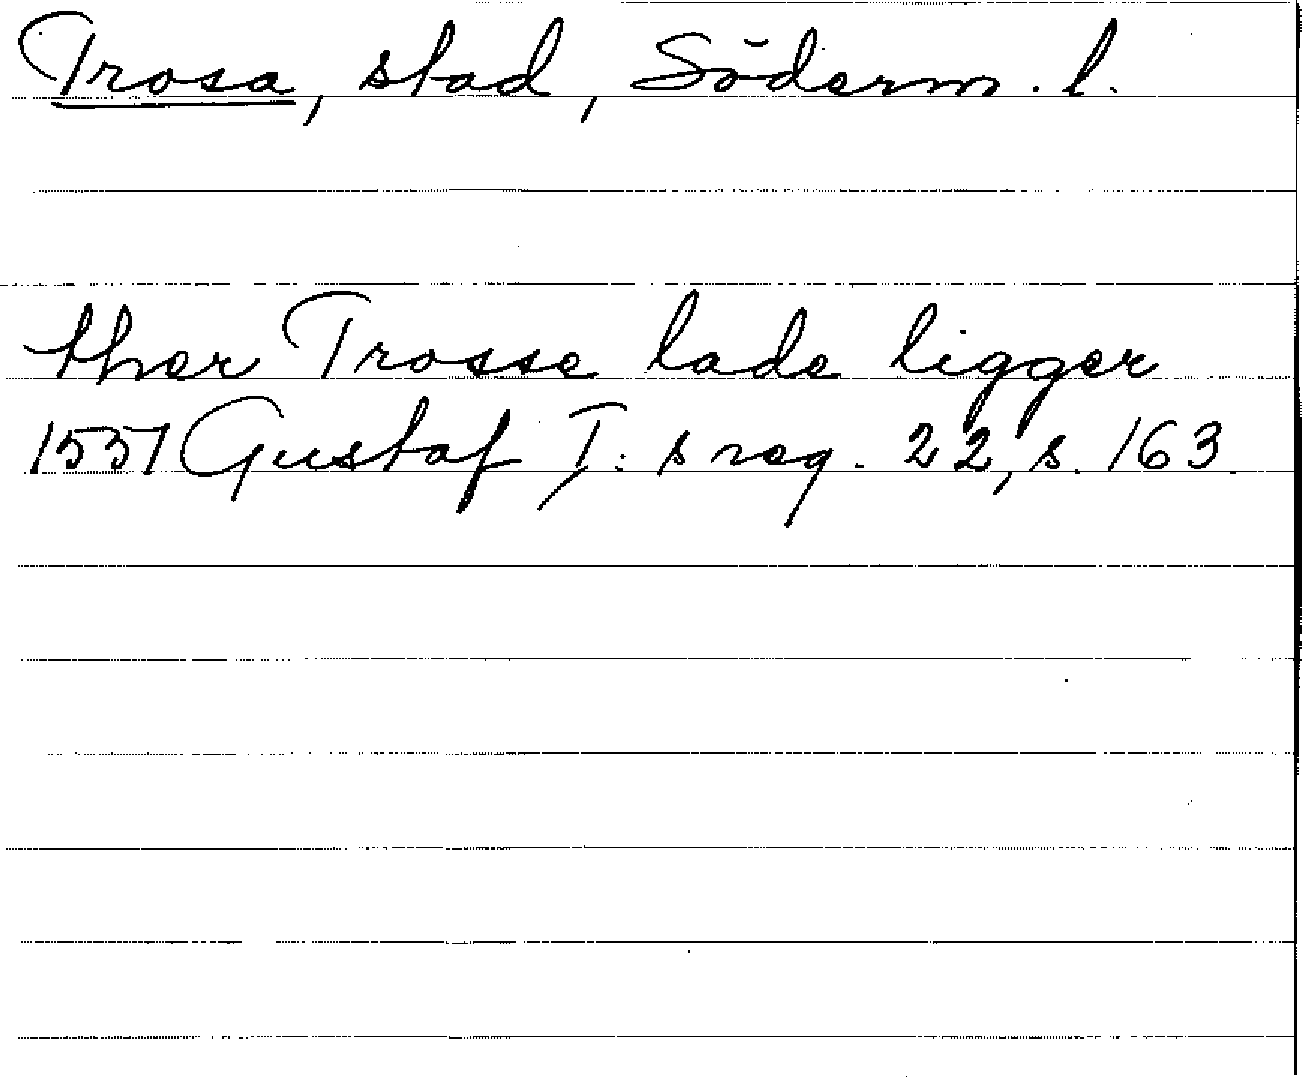 Trosa, stad, Söderm. l.
ther Trosse lade ligger
1551 Gustaf I: s reg. 22, s. 163.